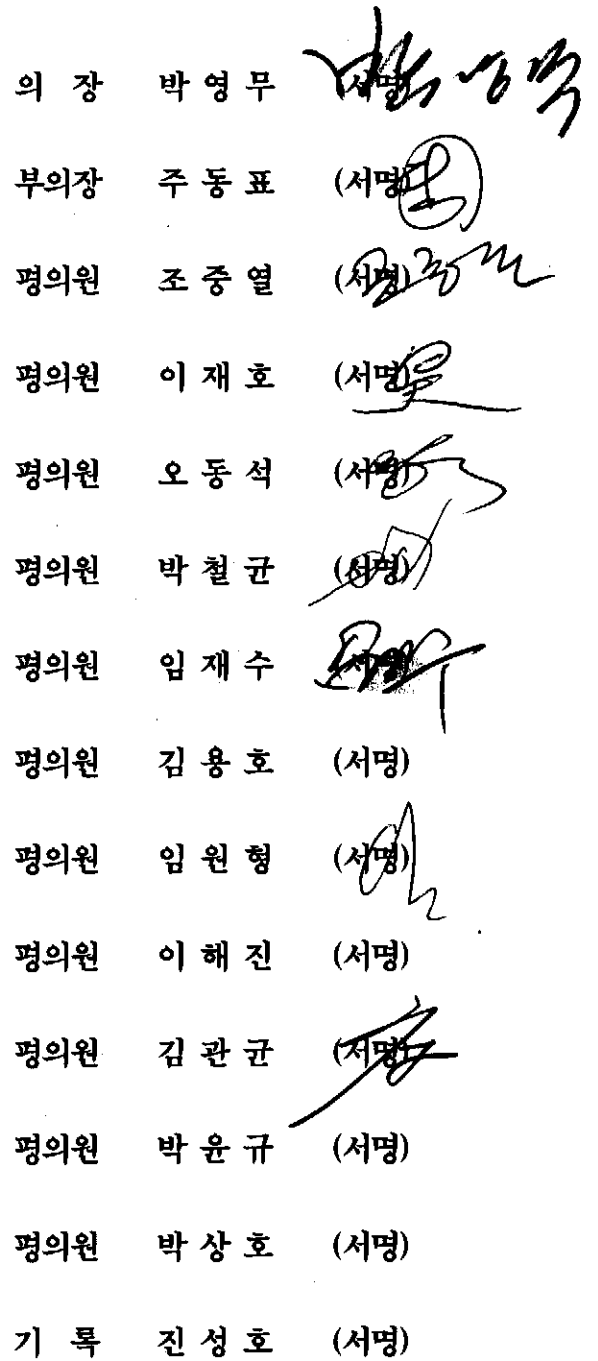 의 장 박 영 무 (서명)
부의장 주 동 표 (서명)
평의원 조 중 열 (서명)
평의원 이 재 호 (서명)
평의원 오 동 석 (서명)
평의원 박 철 균 (서명)
평의원 임 재 수 (서명)
평의원 김 용 호 (서명)
평의원 임 원 형 (서명)
평의원 이 해 진 (서명)
평의원 김 관 균 (서명)
평의원 박 윤 규 (서명)
평의원 박 상 호 (서명)
기 록 진 성 호 (서명)